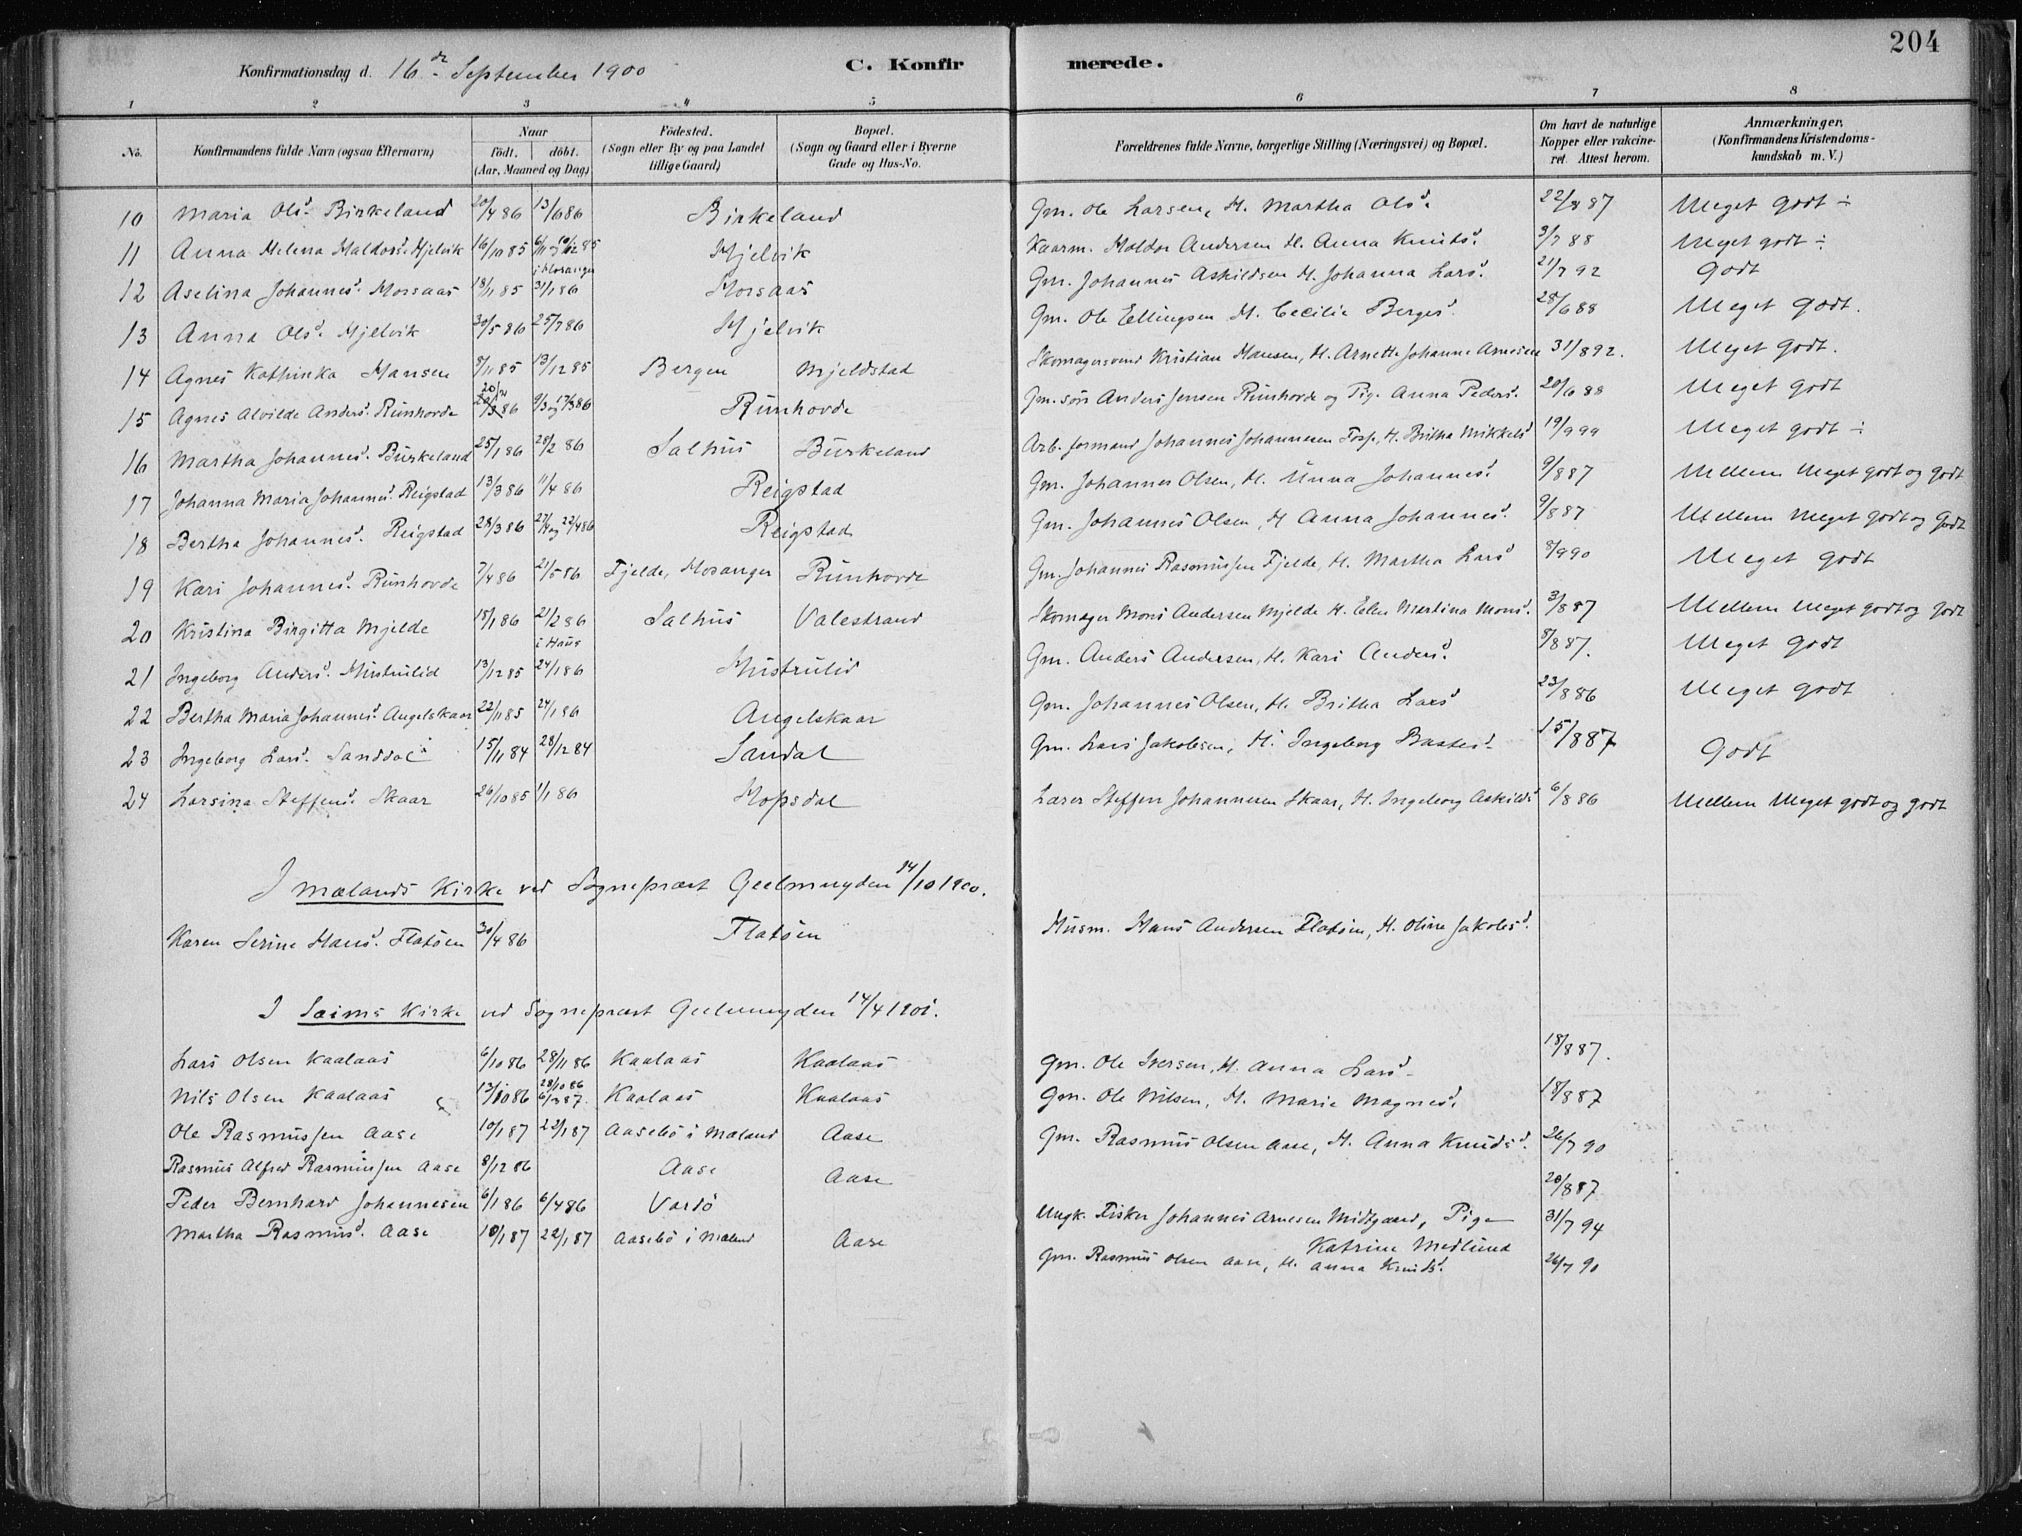 204
Konfirmationsdag d. 16de September 1900 C. Konfirmerede.
1 2 3 4 5 6 7 8
No. Konfirmandens fulde Navn (ogsaa Efternavn) Naar födt. döbt. (Aar, Maaned og Dag) Födested. (Sogn eller By og paa Landet tillige Gaard) Bopæl. (Sogn og Gaard eller i Byerne Gade og Hus-No. Forældrenes fulde Navne, borgerlige Stilling (Næringsvei) og Bopæl. Om havt de naturlige Kopper eller vakcineret. Attest herom. Anmærkninger. (Konfirmandens Kristendomskundskab m. V.)
10 Maria Olsd. Birkeland 20/4 86 13/6 86 Birkeland Gm. Ole Larsen, H. Martha Olsd. 22/8 87 Meget godt ÷
11 Anna Helena Haldorsd. Hjelvik 16/10 85 6/11 og 10/12 85 Hjelvik Kaarm. Haldor Andersen H. Anna Knutsd. 3/7 88 Meget godt ÷
12 Aselina Johannesd. Morsaas 18/11 85 31/1 86 i Mosanger Morsaas Gm. Johannes Askildsen H. Johanna Larsd. 21/7 92 Godt
13 Anna Olsd. Hjelvik 30/5 86 25/7 86 Hjelvik Gm. Ole Ellingsen H. Cecilie Bergesd. 28/6 88 Meget godt.
14 Agnes Kathinka Hansen 8/11 85 13/12 85 Bergen Mjeldstad Skomagersvend Kristian Hansen, H. Arnette Johanne Arnesen 31/8 92. Meget godt.
15 Agnes Alvilde Andersd. Runhovde 86 9/3 og 17/3 86 Runhovde Gm. sön Anders Jensen Runhovde og Pig. Anna Pedersd. 20/6 88 Meget godt
16 Martha Johannesd. Burkeland 25/1 86 28/2 86 Salhus Burkeland Arb. formand Johannes Johannesen Fosse, H. Britha Mikkelsd 19/9 99 Meget godt ÷
17 Johanna Maria Johannesd. Reigstad 13/3 86 11/4 86 Reigstad Gm. Johannes Olsen, H. Unna Johannesd. 9/8 87 Mellem Meget godt og godt
18 Bertha Johannesd. Reigstad 28/3 86 27/4 og 22/4 86 Reigstad Gm. Johannes Olsen, H Anna Johannesd. 9/8 87 Mellem Meget godt og Godt
19 Kari Johannesd. Runhovde 7/4 86 21/5 86 Fjelde, Mosanger Runhovde Gm. Johannes Rasmussen Fjelde, H. Martha Larsd 8/9 90 Meget godt
20 Kristina Birgitta Mjelde 18/1 86 21/2 86 i Haus Salhus Valestrand Skomager Mons Andersen Mjelde H. Elen Martina Monsd. 3/8 87 Mellem Meget godt og godt
21 Ingeborg Andersd. Mustrulid 13/12 85 24/1 86 Mustrulid Gm. Anders Andersen, H. Kari Andersd. 8/8 87. Meget godt
22 Bertha Maria Johannesd. Angelskaar 22/11 85 24/1 86 Angelskaar Gm. Johannes Olsen, H. Britha Larsd 23/8 86 Meget godt
23 Ingeborg Larsd. Sanddal 15/11 84 28/12 84 Sandal Gm. Lars Jakobsen, H. Ingeborg Baatesd. 15/8 87 Godt
24 Larsina Steffensd. Skaar 26/10 85 1/1 86 Hopsdal Lærer Steffen Johannesen Skaar, H. Ingeborg Askildsd 6/8 86 Mellem Meget godt og godt
I Mælands Kirke ved Sognepræst Geelmuyden 14/10 1900.
Karen Serine Hansd. Flatöen 30/4 86 Flatöen Husm. Hans Andersen Flatöen, H. Oline Jakobsd.
I Sæims Kirke ved Sognepræst Geelmuyden 14/4 1901.
Lars Olsen Kaalaas 6/10 86 28/11 86 Kaalaas Kaalaas Gm. Ole Iversen, H. Anna Larsd. 18/8 87.
Nils Olsen Kaalaas 13/10 86 28/10 86 6/3 87. Kaalaas Kaalaas Gm. Ole Nilsen, H. Marie Magnesd. 18/8 87
Ole Rasmussen Aase 10/1 87 22/1 87 Aasebö i Mæland Aase Gm. Rasmus Olsen Aase, H. Anna Knudsd. 26/7 90
Rasmus Alfred Rasmussen Aase 8/12 86 Aase Aase 20/8 87
Peder Bernhard Johannesen 6/1 86 6/4 86 Vardö Ungk. Fisker Johannes Arnesen Midtgaard, Pige Katrine Medlund 31/7 94
Martha Rasmusd. Aase 10/1 87 22/1 87 Aasebö i Mæland Aase Gm. Rasmus Olsen Aase, H. Anna Knudsd. 26/7 90